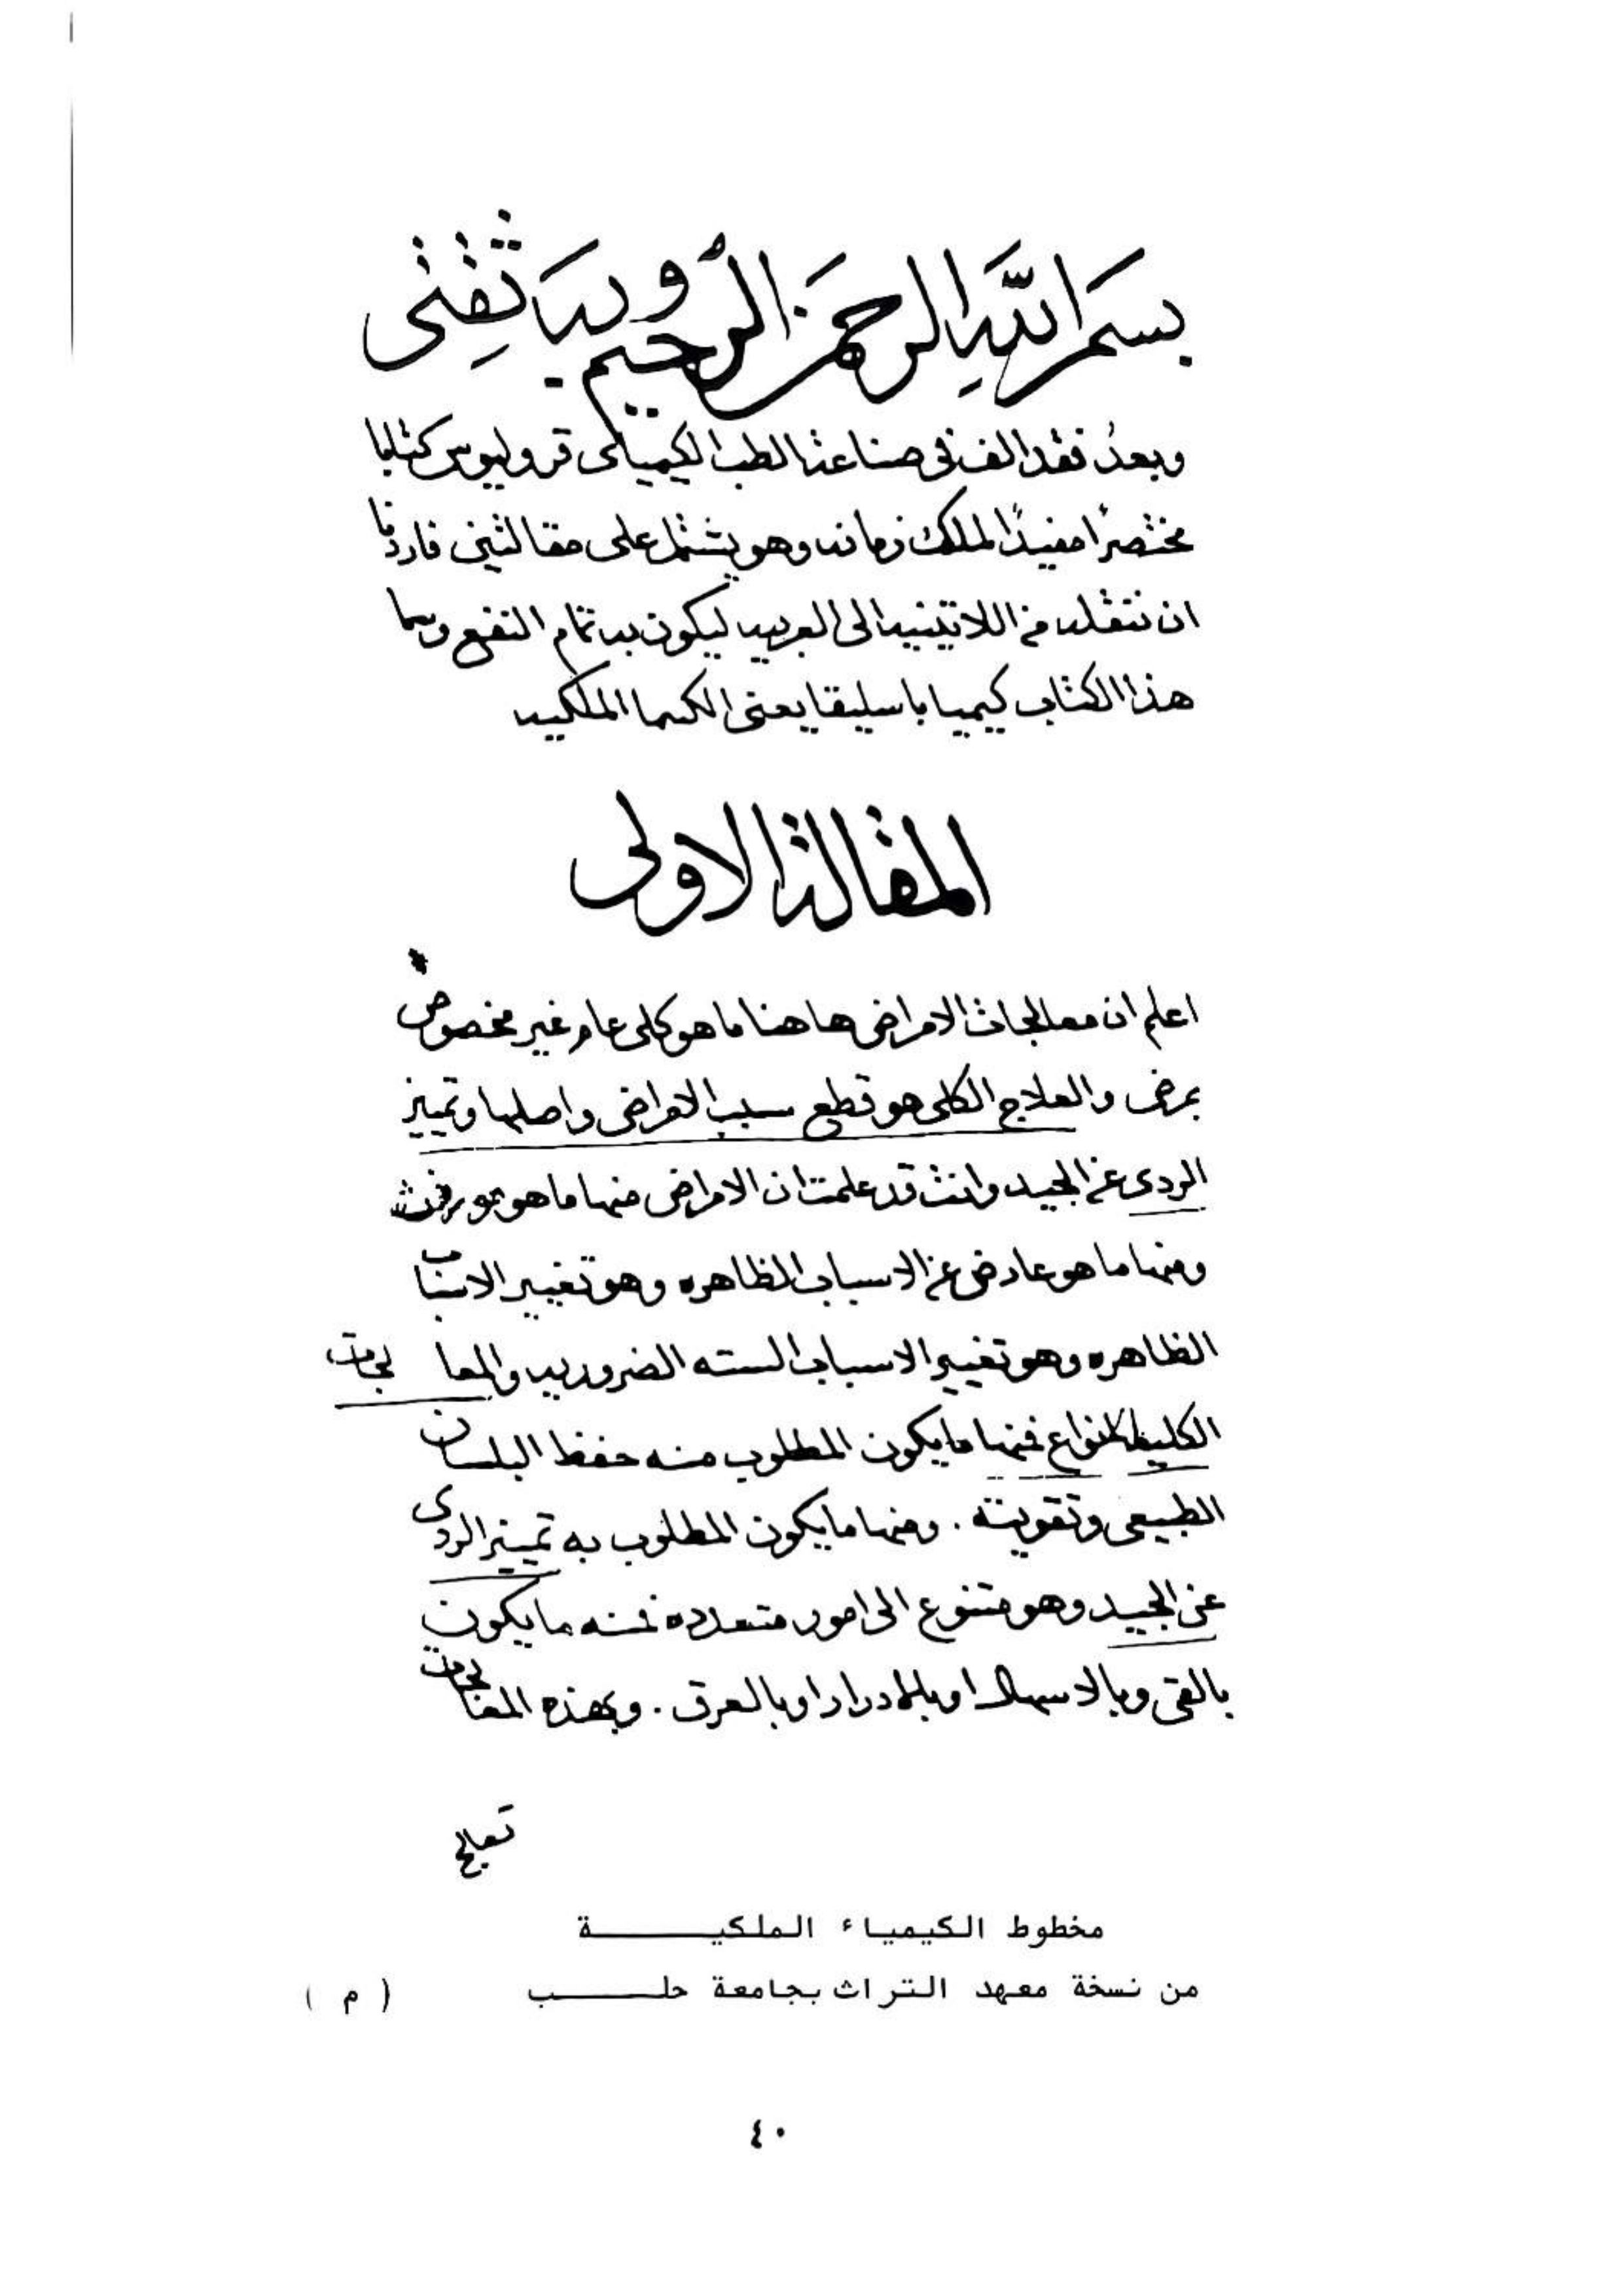 بسم الله الرحمن الرحيم وبه ثقتي
وبعد فقد الف في صناعة الطب الكيمياى قروليوس كتابا
مختصرا مفيدا لملك زمانه وهو يشتمل على مقالتين فاردنا
ان ننقله من اللاتينيه الى العربيه ليكون به تمام النفع وسما
هذا الكتاب كيميا باسليقا يعنى الكيميا الملكيه
المقالة الاولى
اعلم ان معالجات الامراض هاهنا ما هو كلى عام غير مخصوص
بمرض والعلاج الكلى هو قطع سبب الامراض واصلها وتمييز
الردى عن الجيد وانت قد علمت ان الامراض منها ما هو موروث
ومنها ما هو عارض عن الاسباب الظاهره وهو تغيير الاسباب
الظاهره وهو تغيير الاسباب السته الضروريه والمعا لجات
الكليه انواع فمنها ما يكون المطلوب منه حفظ البلسان
الطبيعى وتقويته . ومنها ما يكون المطلوب به تمييز الردى
عن الجيد وهو متنوع الى امور متعدده فمنه ما يكون
بالقى وبالاسهال او بالادرار او بالعرق . وبهذه المعالجات
تعالج
مخطوط الكيمياء الملكيـــــة
من نسخة معهد التراث بجامعة حلـــــب ( م )
٤٠